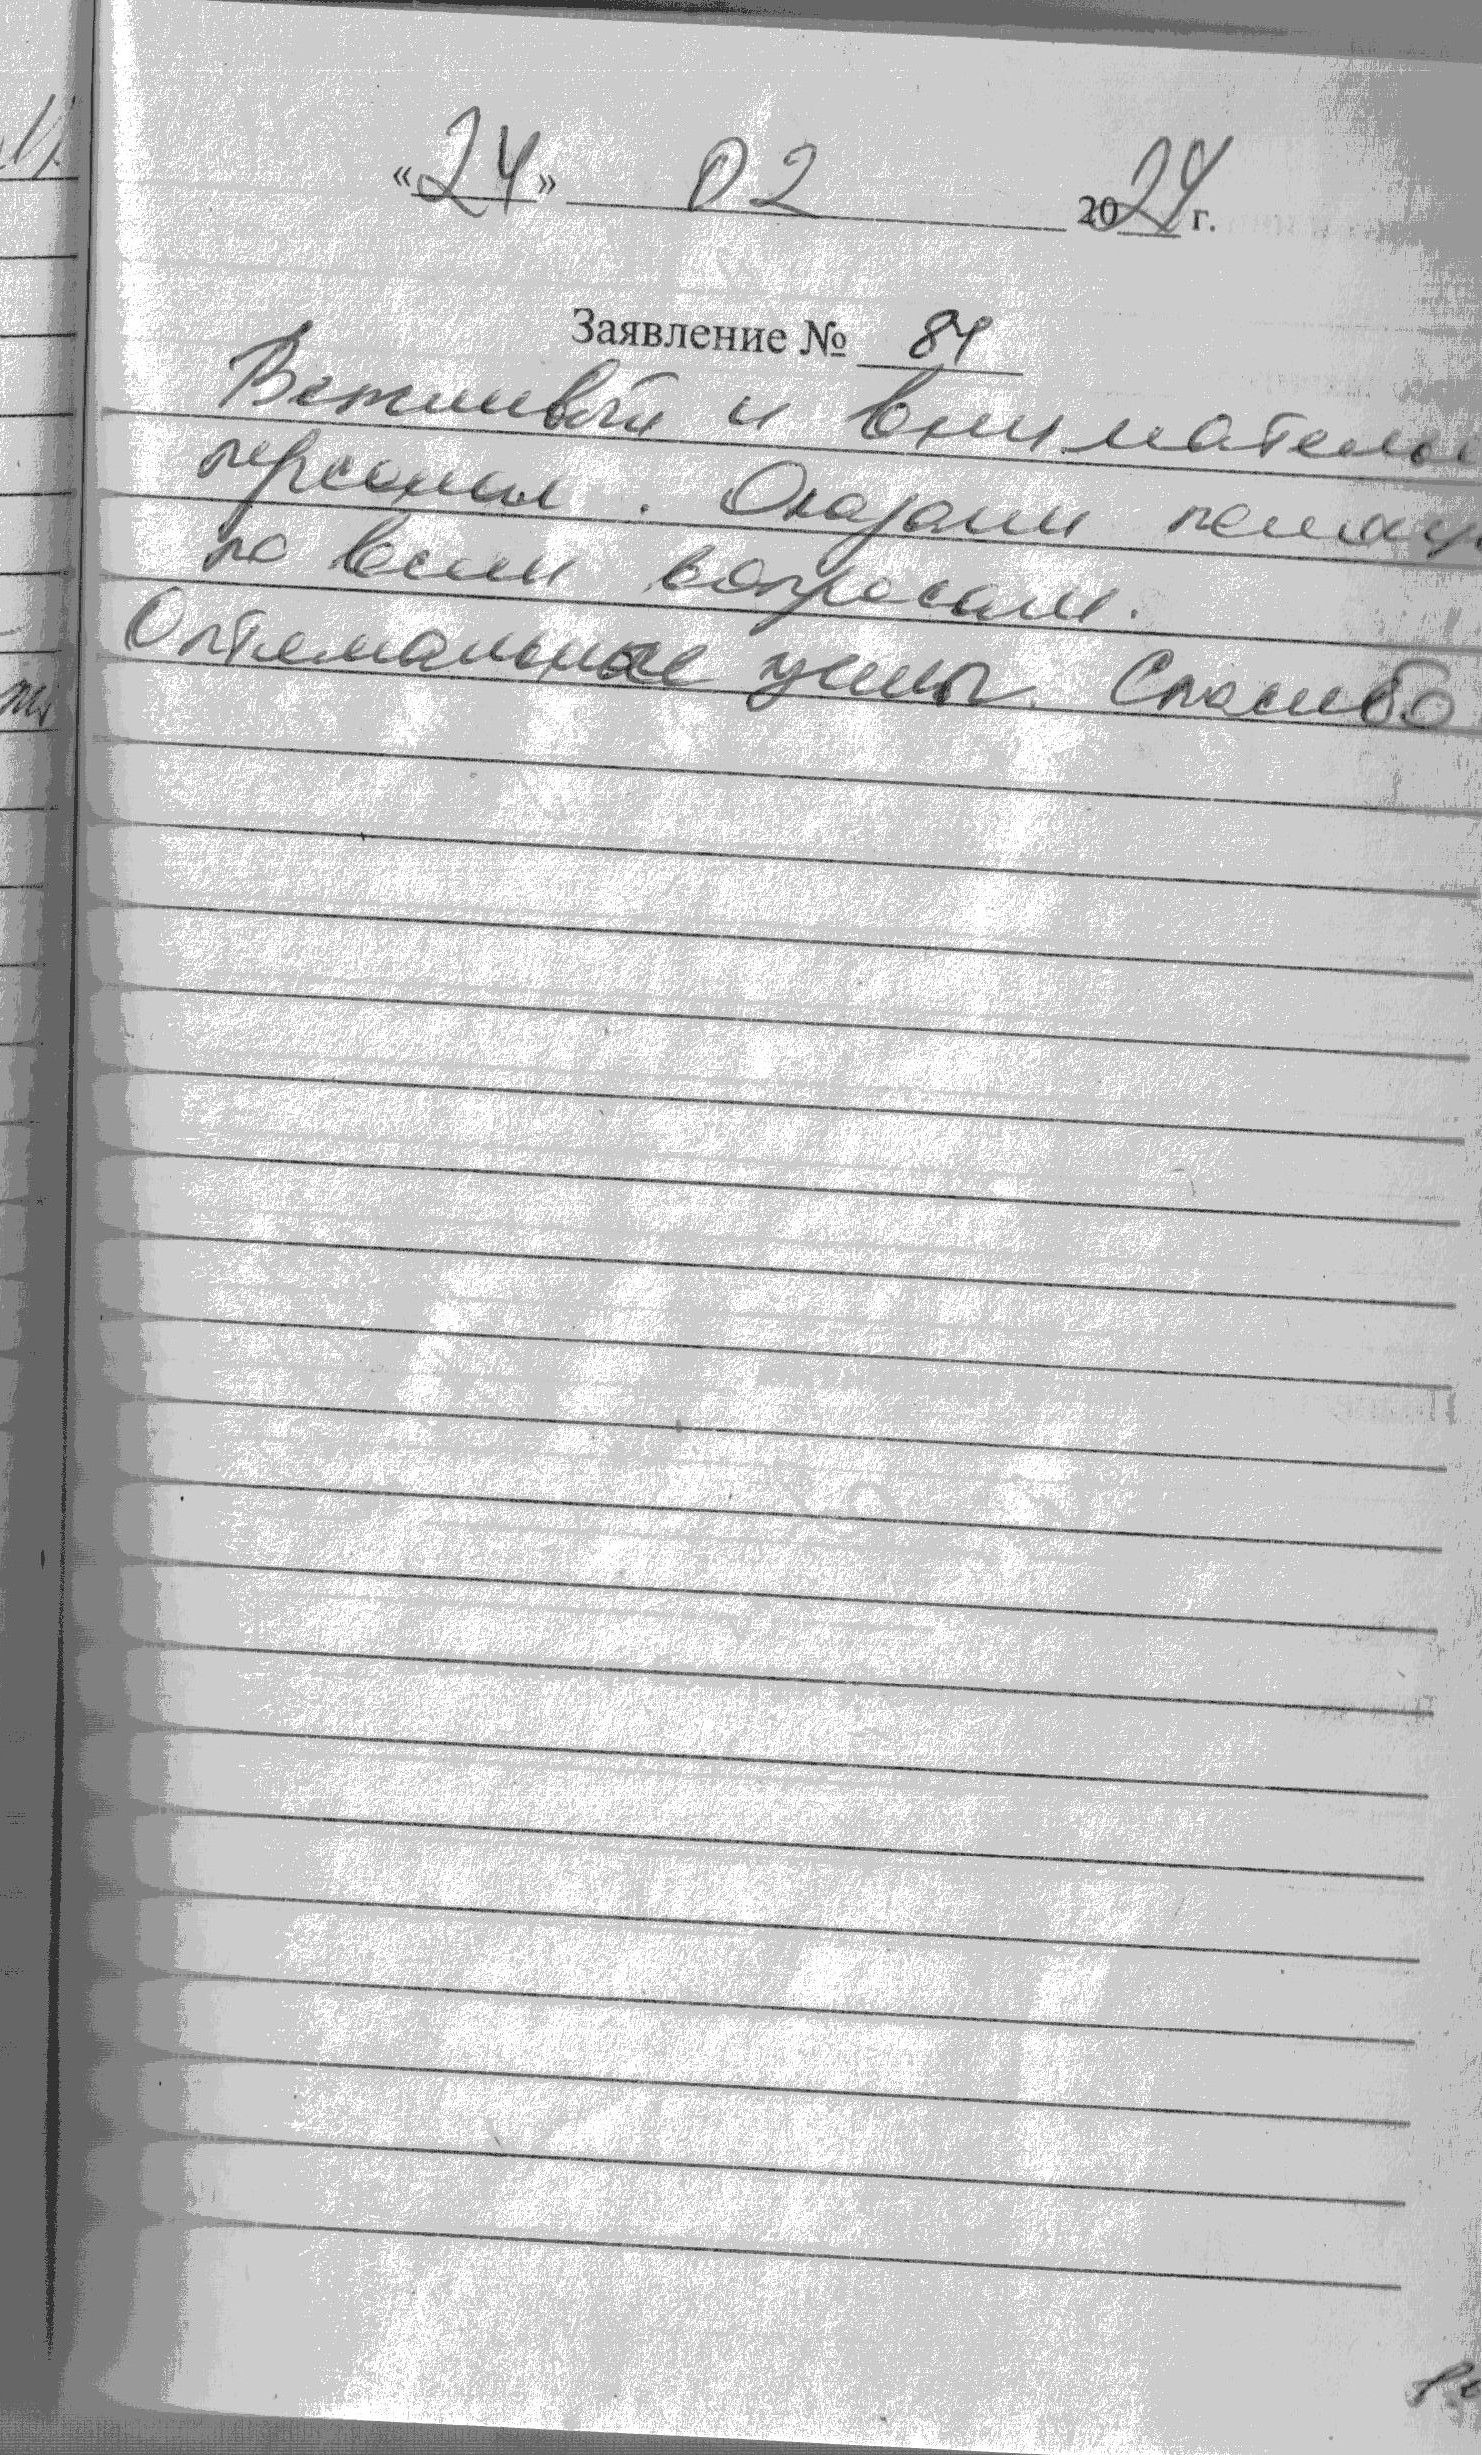 «24» 02 2024 г.
Заявление № 84
Вежливый и вниматель
персонал. Оказали помощь
по всем вопросам.
Оптимальные цены. Спасибо